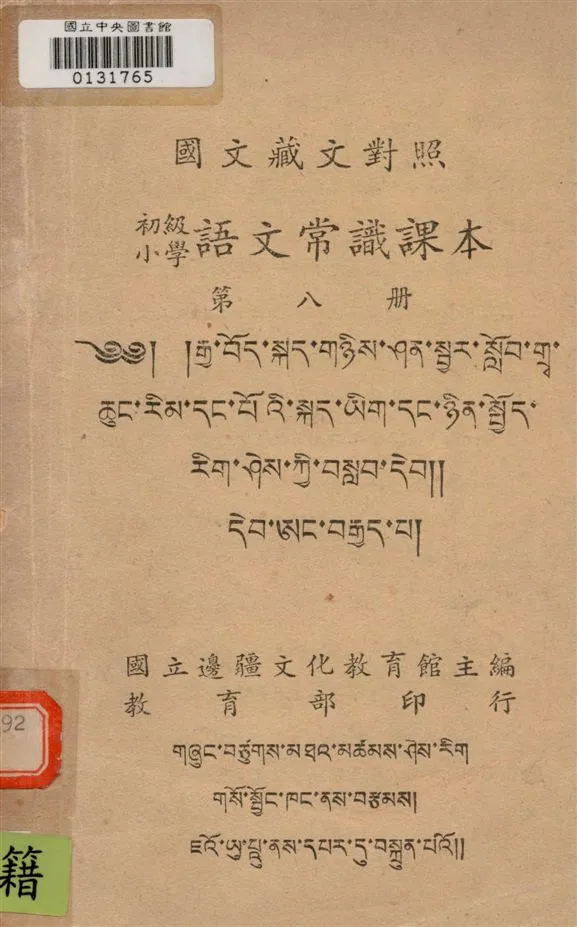 國立中央圖書館
0131765
國文藏文對照
初級小學語文常識課本
第八册
༄༅། །རྒྱ་བོད་སྐད་གཉིས་ཤན་སྦྱར་སློབ་གྲྭ་
ཆུང་རིམ་དང་པོ་འི་སྐད་ཡིག་དང་ཉིན་སྤྱོད་
རིག་ཤེས་ཀྱི་བསླབ་དེབ།།
དེབ་ཨང་བརྒྱད་པ།
國立邊疆文化教育館主編
教育部印行
གཞུང་བཙུགས་མཐའ་མཚམས་ཤེས་རིག
གསོ་སྦྱོང་ཁང་ནས་བརྩམས།
ཇའོ་ཡུ་པུུ་ནས་དཔར་དུ་བསྐྲུན་པའོ།།
92
籍